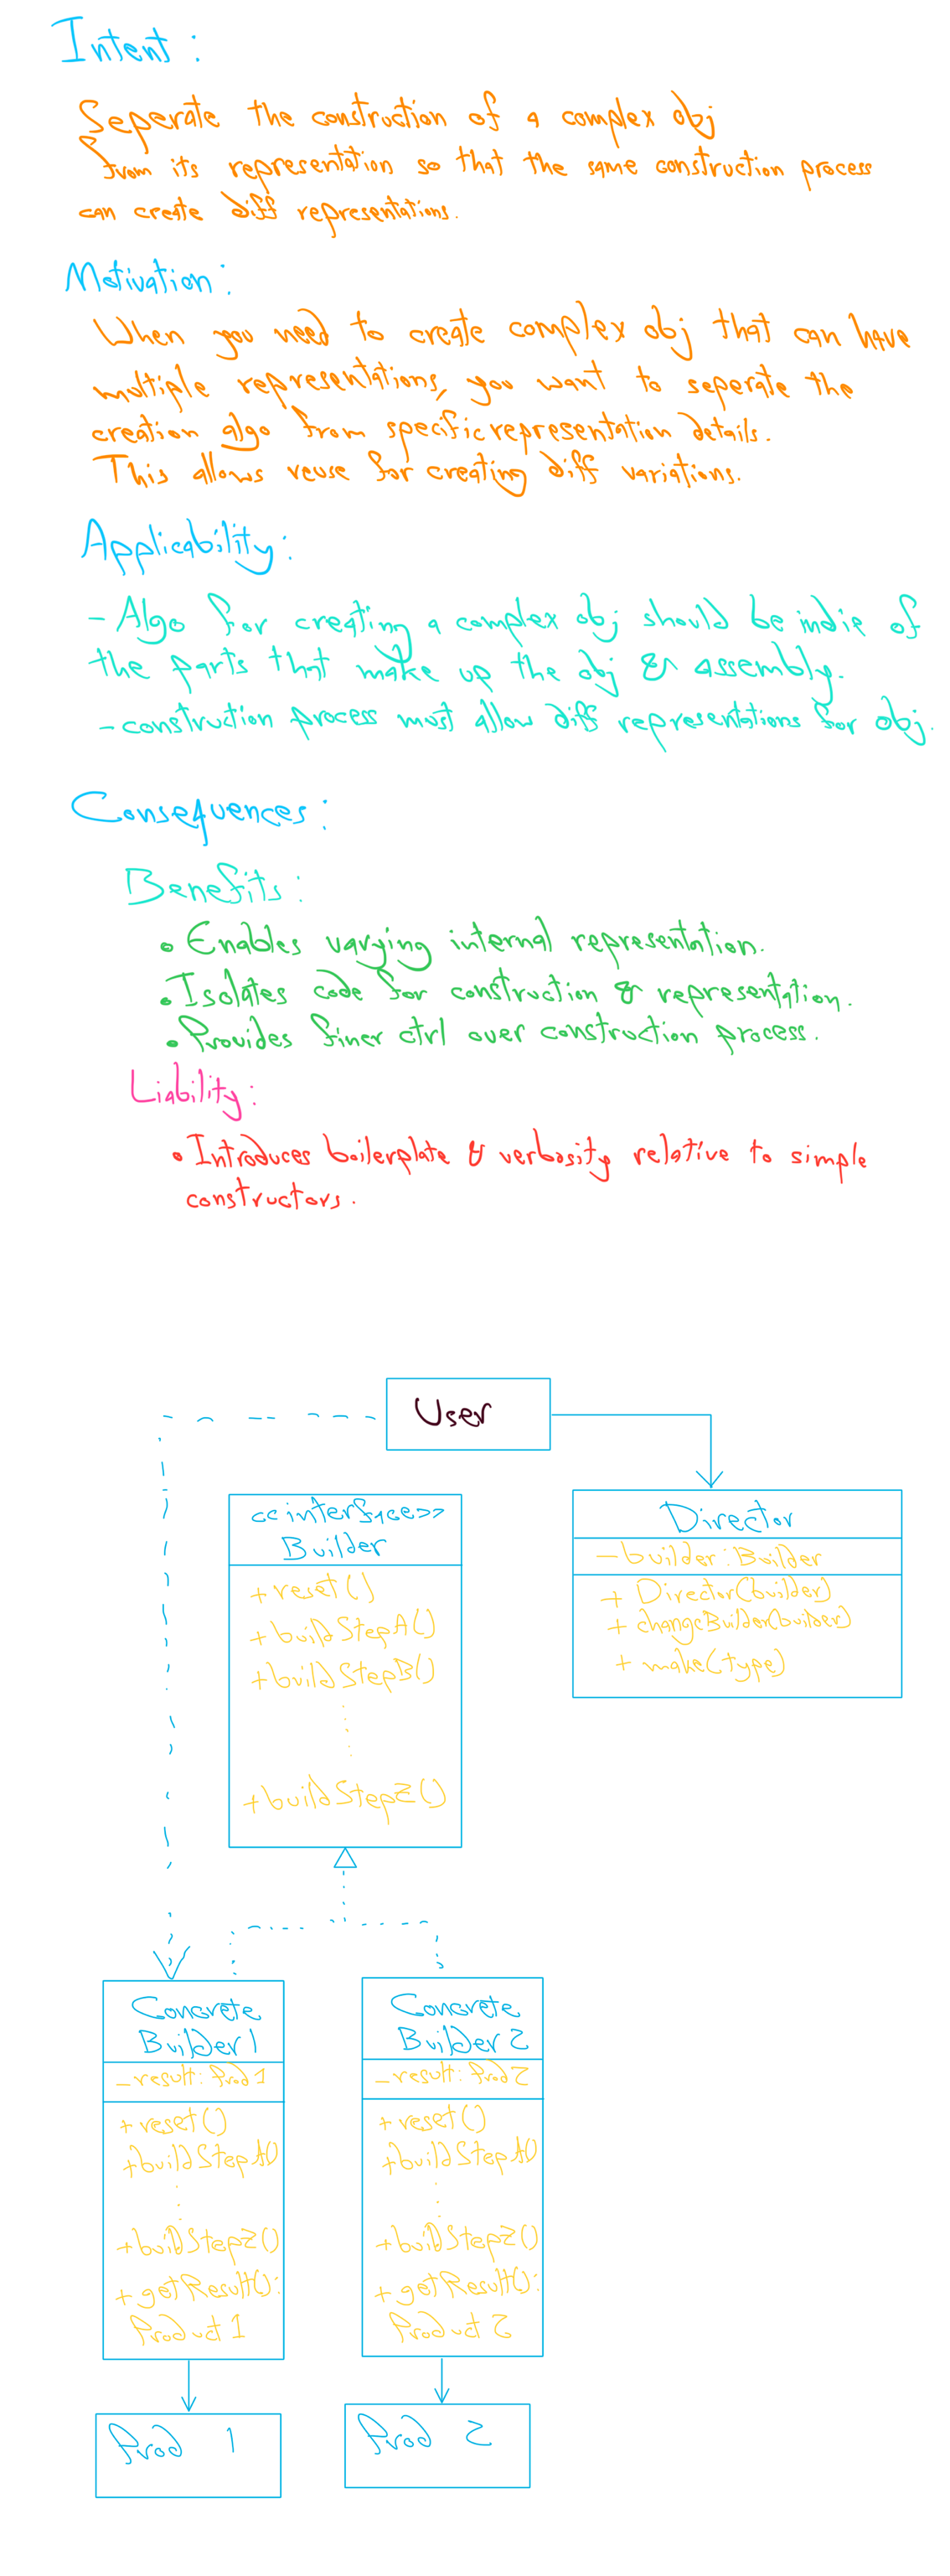 Intent :
Seperate the construction of a complex obj
from its representation so that the same construction process
can create diff representations.
Motivation :
When you need to create complex obj that can have
multiple representations, you want to seperate the
creation algo from specific representation details.
This allows reuse for creating diff variations.
Applicability :
- Algo for creating a complex obj should be indie of
the parts that make up the obj & assembly.
- construction process must allow diff representations for obj.
Consequences :
Benefits :
• Enables varying internal representation.
• Isolates code for construction & representation.
• Provides finer ctrl over construction process.
Liability :
• Introduces boilerplate & verbosity relative to simple
constructors.
User
<<interface>>
Builder
+reset()
+buildStepA()
+buildStepB()
+buildStepZ()
Director
- builder : Builder
+ Director(builder)
+ changeBuilder(builder)
+ make(type)
Concrete
Builder 1
- result: Prod 1
+reset()
+buildStepA()
+buildStepZ()
+getResult():
Product 1
Concrete
Builder 2
- result: Prod 2
+reset()
+buildStepA()
+buildStepZ()
+getResult():
Product 2
Prod 1
Prod 2